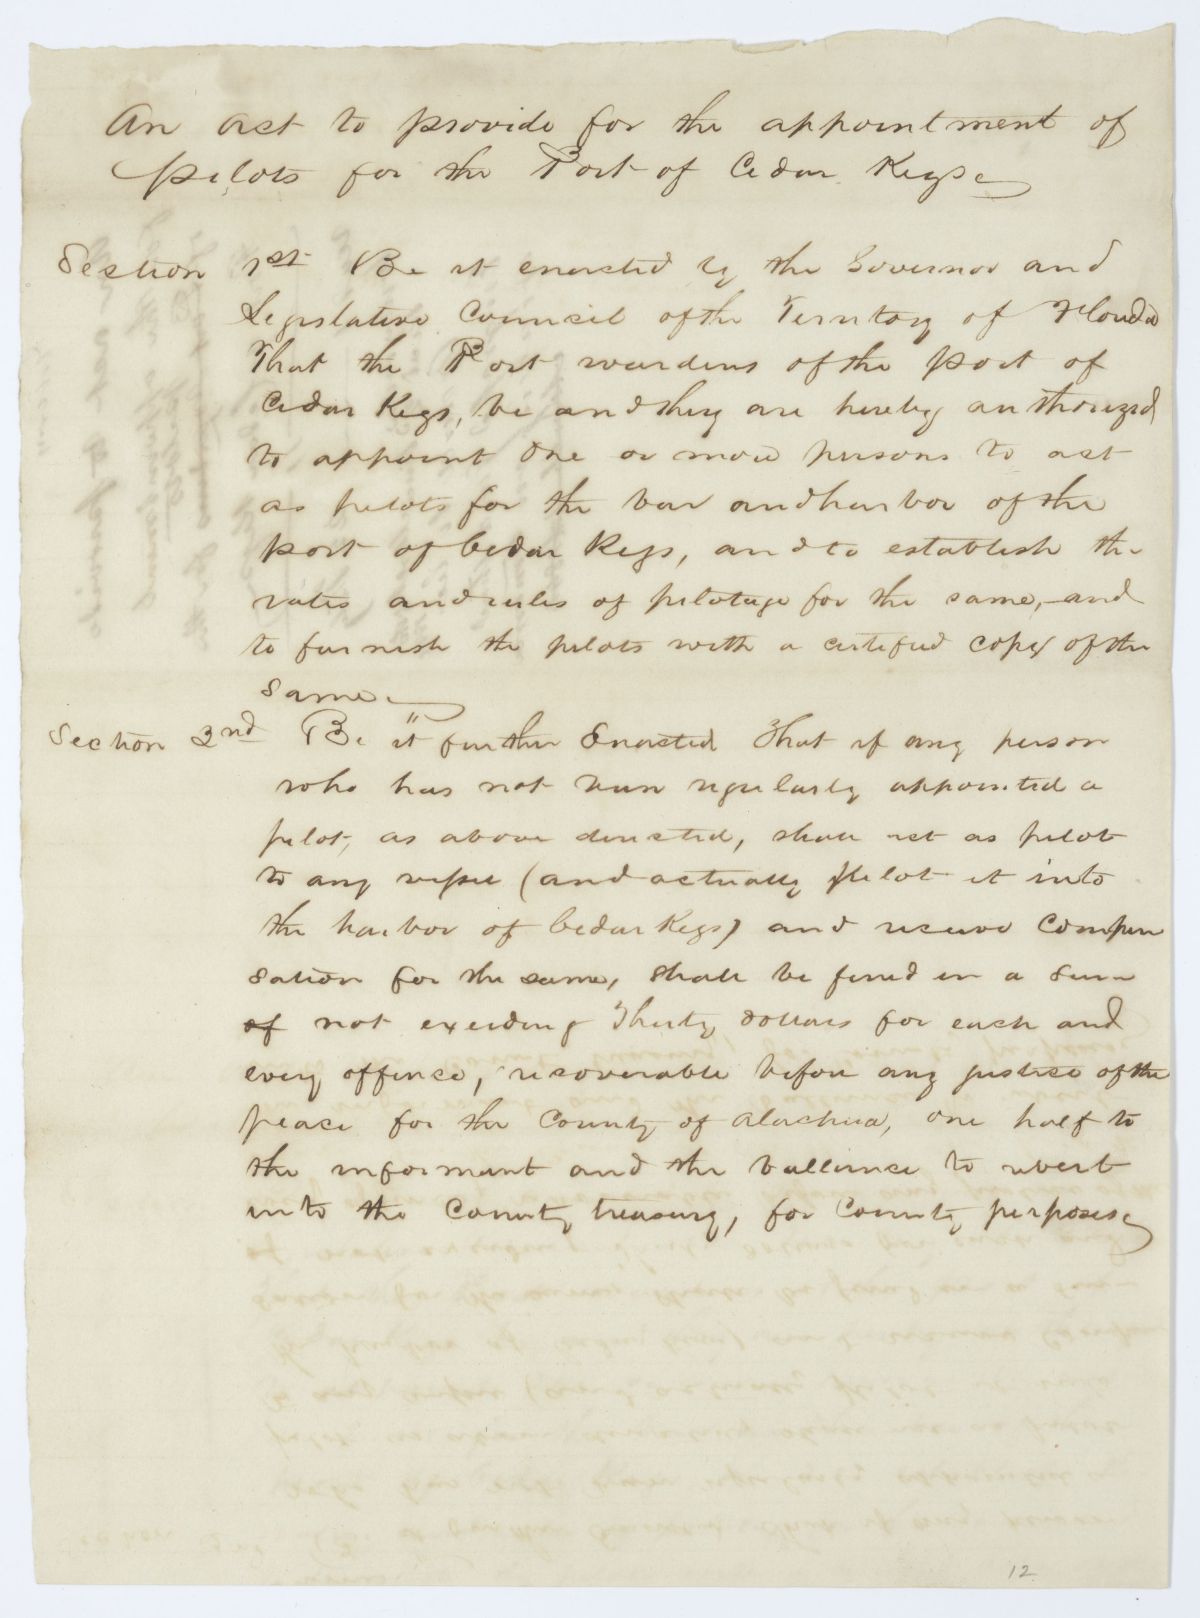 An act to provide for the appointment of
pilots for the Port of Cedar Keys
Section 1st Be it enacted by the Governor and
Legislative Council of the Territory of Florida
That the Port wardens of the port of
Cedar Keys, be and they are hereby authorized
to appoint one or more persons to act
as pilots for the bar and harbor of the
port of Cedar Keys, and to establish the
rates and rules of pilotage for the same, and
to furnish the pilots with a certified copy of the
same
Section 2nd Be it further Enacted That if any person
who has not been regularly appointed a
pilot, as above directed, shall act as pilot
to any vessel (and actually pilot it into
the harbor of Cedar Keys) and receive Compen
sation for the same, shall be fined in a sum
of not exceeding Thirty dollars for each and
every offence, recoverable before any justice of the
peace for the County of Alachua, one half to
the informant and the ballance to revert
into the County treasury, for County purposes
12